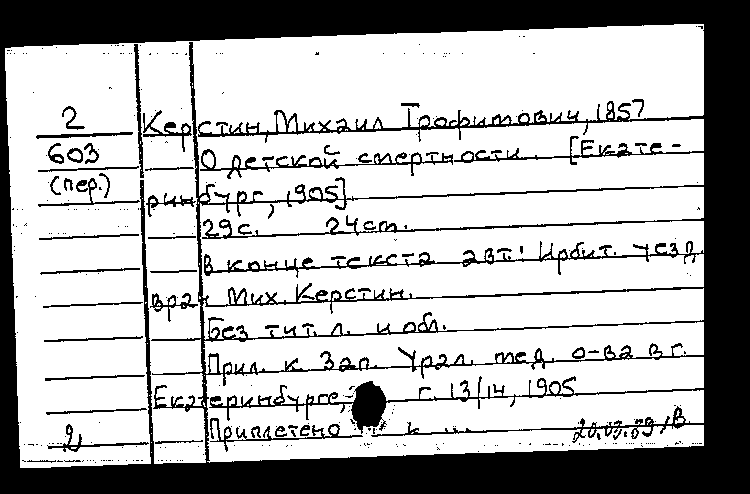 2 Керстин, Михаил Трофимович, 1857
603 О детской смертности. [Екате-
(пер.) ринбург, 1905].
29с. 24см.
В конце текста авт.: Ирбит. уезд.
врач Мих. Керстин.
Без тит. л. и обл.
Прил. к Зап. Урал. мед. о-ва в г.
Екатеринбурге, г. 13/14, 1905
2 Приплетено к